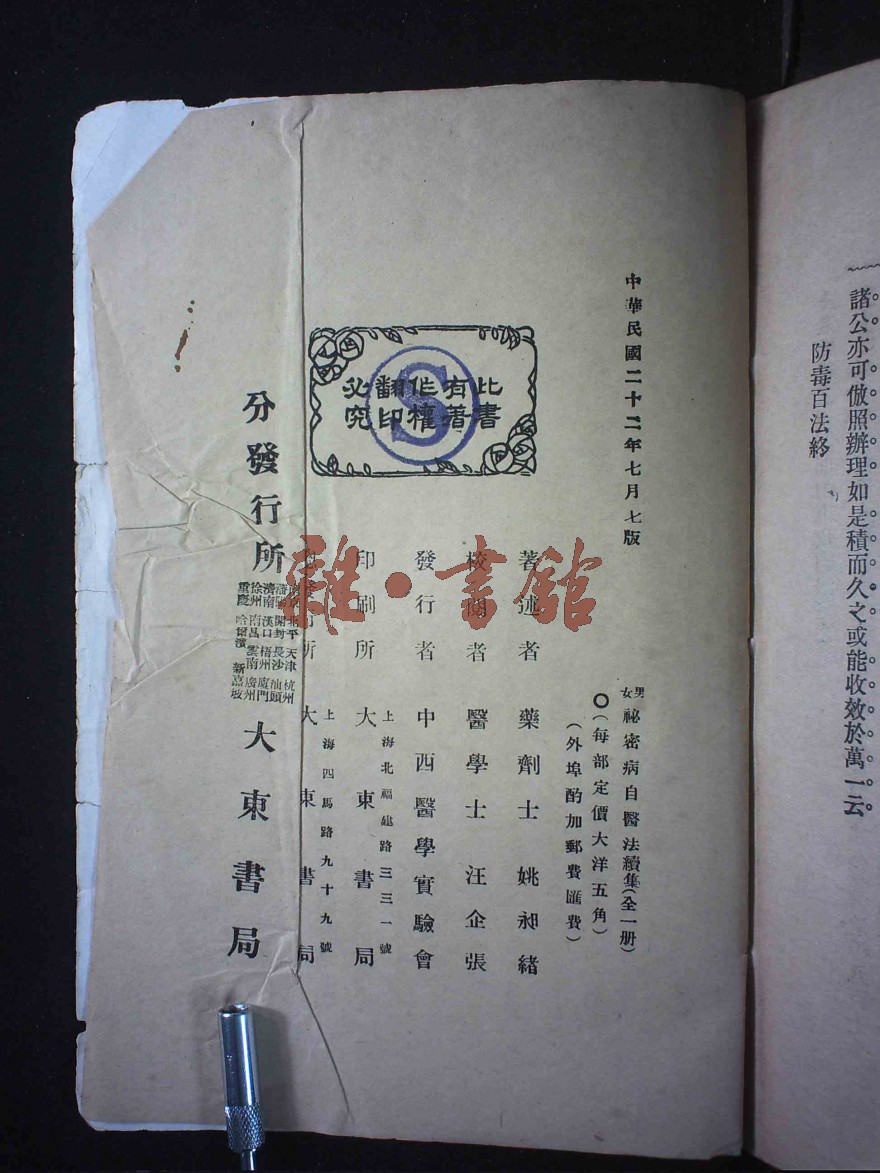 諸公亦可倣照辦理如是積而久之或能收效於萬一云
防毒百法終
中華民國二十二年七月七版
男女祕密病自醫法續集(全一册)
(每部定價大洋五角)
(外埠酌加郵費匯費)
此書有著作權翻印必究
S
著述者 藥劑士 姚昶緒
校閱者 醫學士 汪企張
發行者 中西醫學實驗會
上海北福建路三三一號
印刷所 大東書局
上海四馬路九十九號
總發行所 大東書局
分發行所
南京 北平 天津 杭州
瀋陽 開封 長沙 汕頭
濟南 漢口 梧州 廈門
徐州 南昌 雲南 廣州
重慶 哈爾濱 新嘉坡
大東書局
雜·書館